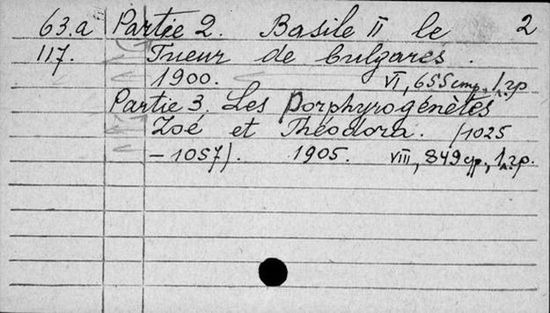 63.a Partie 2. Basile II le 2
117. Tueur de bulgares.
1900. VI, 655 стр., 1 л. гр.
Partie 3. Les Porphyrogénètes
Zoé et Théodora. /1025
–1057/. 1905. VIII, 849 стр., 1 л. гр.